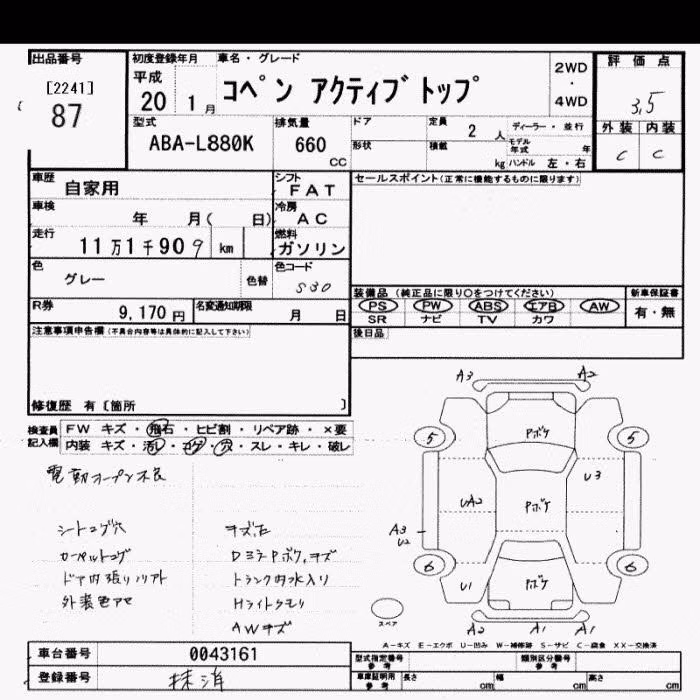 出品番号
[2241]
87
初度登録年月
平成
20 1月
車名・グレード
コペン アクティブトップ
2WD
・
4WD
評価点
3.5
型式
ABA-L880K
排気量
660
CC
ドア
定員
2人
ディーラー・並行
形状
積載
kg
モデル年式
年
ハンドル 左・右
外装 内装
C C
車歴
自家用
シフト
FAT
セールスポイント(正常に機能するものに限ります)
車検
年 月( 日)
冷房
AC
走行
11万1千909 km
燃料
ガソリン
色
グレー
色替
色コード
S30
装備品(純正品に限り○をつけてください)
PS PW ABS エアB AW
SR ナビ TV カワ
新車保証書
有・無
R券
9,170円
名変通知期限
月 日
後日品
注意事項申告欄(不具合内容等は具体的に記入して下さい)
修復歴 有〔箇所 〕
検査員
記入欄
FW キズ・飛石・ヒビ割・リペア跡・×要
内装 キズ・汚レ・コゲ・穴・スレ・キレ・破レ
電動オープン不良
シートコゲ穴
カーペットコゲ
ドア内張りソリアト
外装色アセ
キズ、凹
Dミラーアボケ,キズ
トランク内水入り
Hライトクモリ
AWキズ
A3
A2
5
Pボケ
5
U3
UA2
Pボケ
A3
U2
6
U1
Pボケ
6
スペア
A2
A1
A1
A-キズ E-エクボ U-凹み W-補修跡 S-サビ C-腐食 XX-交換済
車台番号
0043161
型式指定番号
参考
類別区分番号
参考
登録番号
抹消
車庫証明用
参考
長さ
cm
幅
cm
高さ
cm